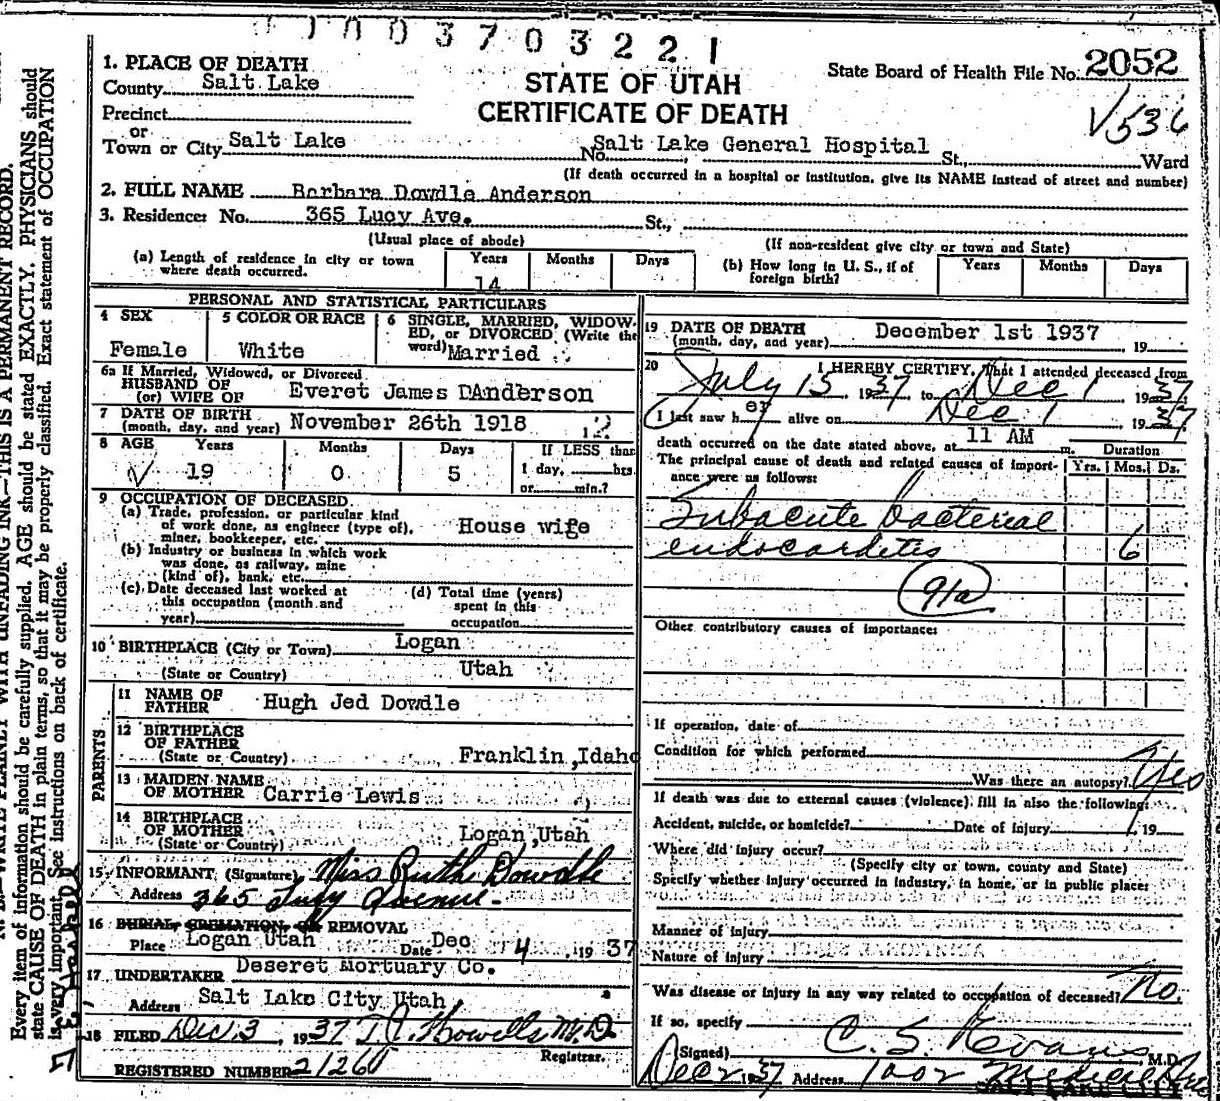 1003703221
1. PLACE OF DEATH
County Salt Lake
Precinct
or
Town or City Salt Lake
STATE OF UTAH
CERTIFICATE OF DEATH
State Board of Health File No. 2052
V536
No. Salt Lake General Hospital St., Ward
(If death occurred in a hospital or institution, give its NAME instead of street and number)
2. FULL NAME Barbara Dowdle Anderson
3. Residence: No. 365 Lucy Ave. St.,
(Usual place of abode)
(If non-resident give city or town and State)
(a) Length of residence in city or town where death occurred.
Years Months Days
14
(b) How long in U. S., if of foreign birth?
Years Months Days
PERSONAL AND STATISTICAL PARTICULARS
4 SEX
Female
5 COLOR OR RACE
White
6 SINGLE, MARRIED, WIDOWED, or DIVORCED (Write the word) Married
6a If Married, Widowed, or Divorced
HUSBAND OF
(or) WIFE OF Everet James DAnderson
7 DATE OF BIRTH
(month, day, and year) November 26th 1918 12
8 AGE Years Months Days If LESS than
19 0 5 1 day, hrs.
or min.?
9 OCCUPATION OF DECEASED
(a) Trade, profession, or particular kind
of work done, as engineer (type of),
miner, bookkeeper, etc. House wife
(b) Industry or business in which work
was done, as railway, mine
(kind of), bank, etc.
(c) Date deceased last worked at
this occupation (month and
year)
(d) Total time (years)
spent in this
occupation
10 BIRTHPLACE (City or Town) Logan
(State or Country) Utah
PARENTS
11 NAME OF
FATHER Hugh Jed Dowdle
12 BIRTHPLACE
OF FATHER
(State or Country) Franklin, Idaho
13 MAIDEN NAME
OF MOTHER Carrie Lewis
14 BIRTHPLACE
OF MOTHER
(State or Country) Logan, Utah
15 INFORMANT (Signature) Miss Ruth Dowdle
Address 365 Lucy Avenue.
16 BURIAL, CREMATION, OR REMOVAL
Place Logan Utah Date Dec 4, 1937
17 UNDERTAKER Deseret Mortuary Co.
Address Salt Lake City Utah
18 FILED Dec. 3, 1937 Howells M.D.
Registrar.
REGISTERED NUMBER 21260
19 DATE OF DEATH
(month, day, and year) December 1st 1937 19
20 I HEREBY CERTIFY, That I attended deceased from
July 15 1937 to Dec 1 1937
I last saw her alive on Dec 1, 1937
death occurred on the date stated above, at 11 AM m.
The principal cause of death and related causes of importance were as follows:
Duration
Yrs. Mos. Ds.
Subacute bacterial
endocarditis 6
91a
Other contributory causes of importance:
If operation, date of
Condition for which performed
Was there an autopsy? Yes
If death was due to external causes (violence) fill in also the following:
Accident, suicide, or homicide? Date of injury , 19
Where did injury occur?
(Specify city or town, county and State)
Specify whether injury occurred in industry, in home, or in public place:
Manner of injury
Nature of injury
Was disease or injury in any way related to occupation of deceased? No.
If so, specify
(Signed) C. S. Evans M.D.
Dec 2 1937 Address 1002 Medical
N. B.—WRITE PLAINLY WITH UNFADING INK—THIS IS A PERMANENT RECORD.
Every item of information should be carefully supplied. AGE should be stated EXACTLY. PHYSICIANS should
state CAUSE OF DEATH in plain terms, so that it may be properly classified. Exact statement of OCCUPATION
is very important. See instructions on back of certificate.